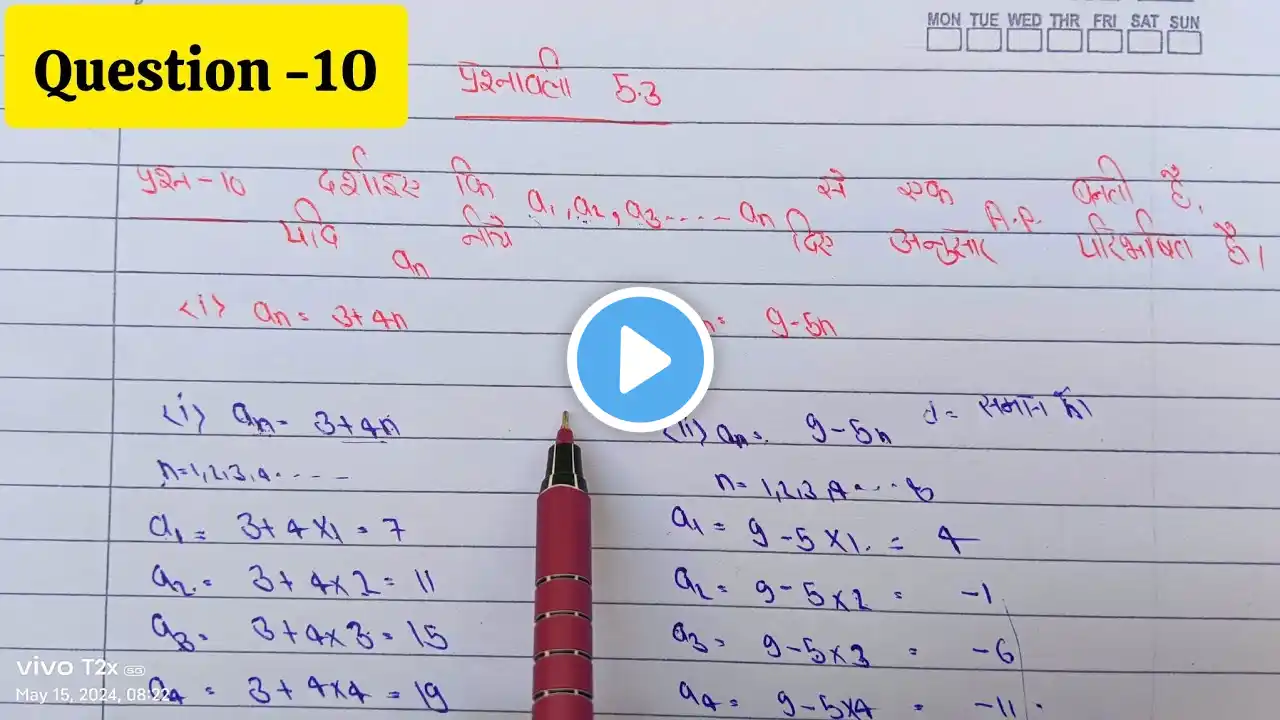 Question -10
MON TUE WED THR FRI SAT SUN
प्रश्नावली 5.3
प्रश्न-10 दर्शाइए कि a₁, a₂, a₃ ..... aₙ से एक A.P. बनती है,
यदि aₙ नीचे दिए अनुसार परिभाषित है।
<i> aₙ = 3+4n
n= 9-5n
<i> aₙ = 3+4n
n=1,2,3,4.....
a₁ = 3+4×1 = 7
a₂ = 3+4×2 = 11
a₃ = 3+4×3 = 15
a₄ = 3+4×4 = 19
<ii> aₙ = 9-5n
d = समान है।
n= 1,2,3,4....
a₁ = 9-5×1. = 4
a₂ = 9-5×2 = -1
a₃ = 9-5×3 = -6
a₄ = 9-5×4 = -11.
vivo T2x 5G
May 15, 2024, 08:22